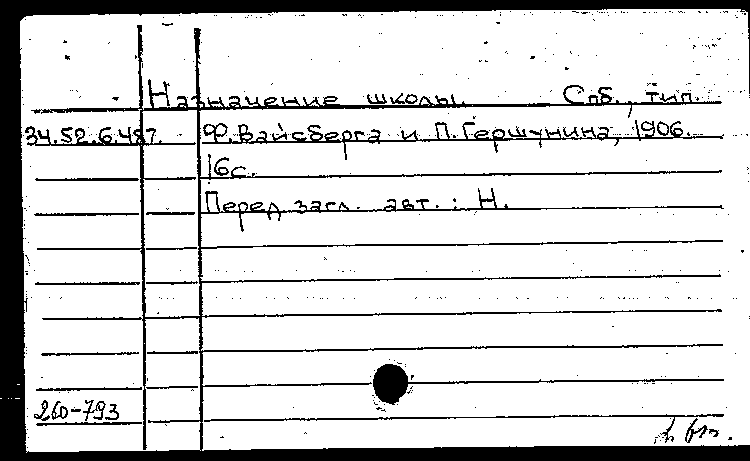 Назначение школы. Спб., тип.
34.52.6.487. Ф. Вайсберга и П. Гершунина, 1906.
16с.
Перед загл. авт.: Н.
260-793